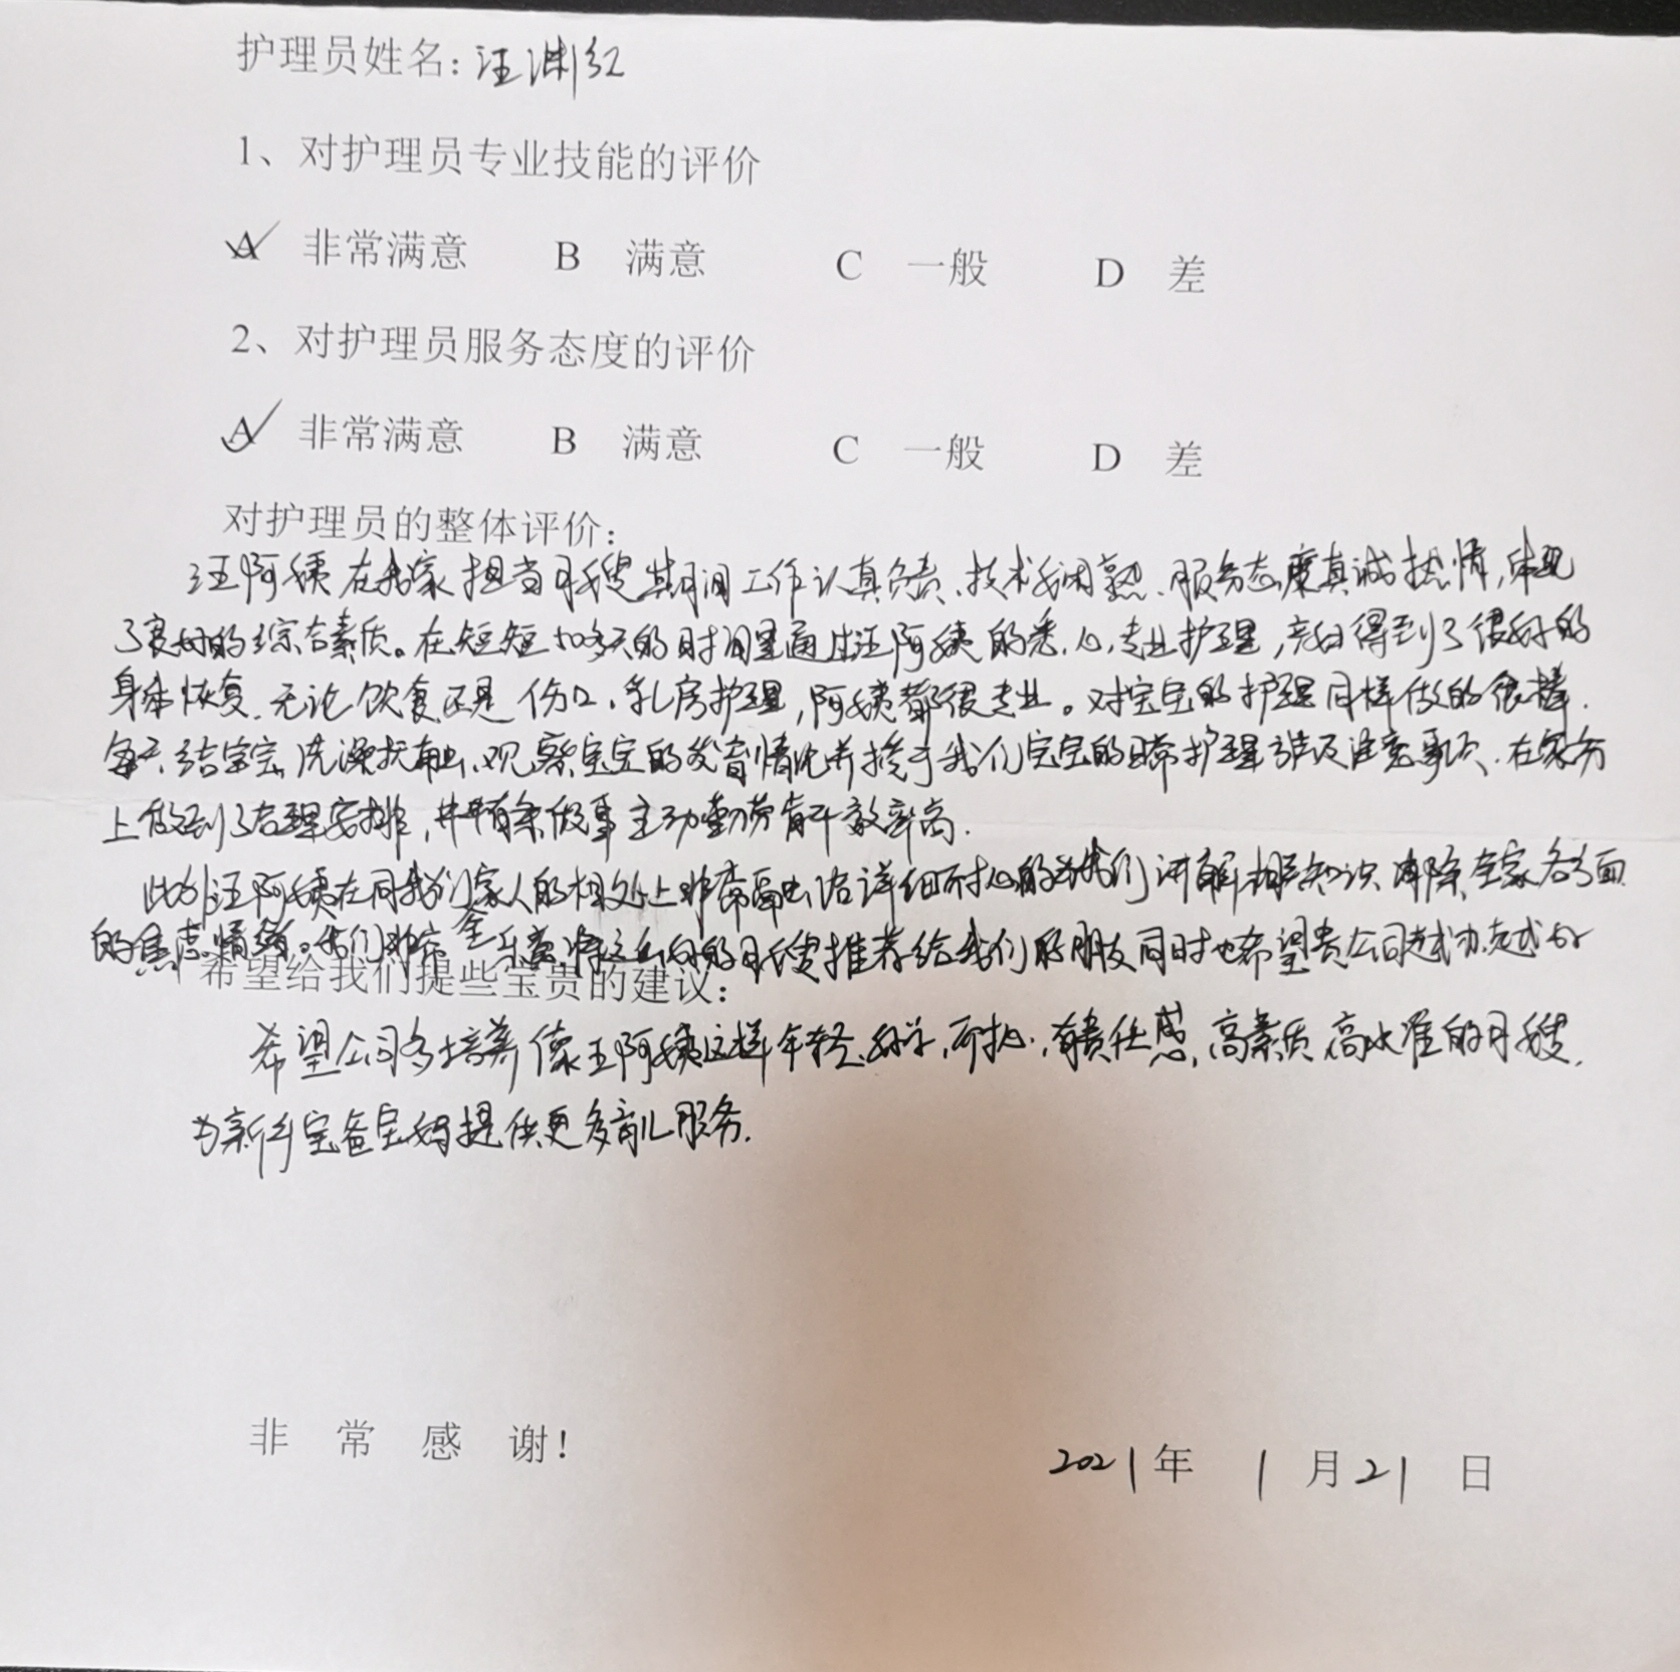 护理员姓名：汪渊红
1、对护理员专业技能的评价
A 非常满意 B 满意 C 一般 D 差
2、对护理员服务态度的评价
A 非常满意 B 满意 C 一般 D 差
对护理员的整体评价：
汪阿姨在我家担当月嫂期间工作认真负责、技术娴熟、服务态度真诚热情，体现
了良好的综合素质。在短短50多天的时间里通过汪阿姨的悉心、专业护理，产妇得到了很好的
身体恢复，无论饮食还是伤口、乳房护理，阿姨都很专业。对宝宝的护理同样做的很棒.
每天给宝宝洗澡抚触、观察宝宝的发育情况并授予我们宝宝的日常护理以及注意事项、在家务
上做到了合理安排，井井有条做事主动勤劳肯干效率高.
此外汪阿姨在同我们家人的相处上非常融洽详细耐心的为我们讲解相关知识 消除全家各方面
的焦虑情绪。我们非常乐意将这么好的月嫂推荐给我们的朋友同时也希望贵公司越办越好
希望给我们提些宝贵的建议：
希望公司多培养像王阿姨这样年轻、好学、耐心、有责任感，高素质高水准的月嫂.
为新乡宝爸宝妈提供更多育儿服务.
非 常 感 谢！
2021年 1月21日